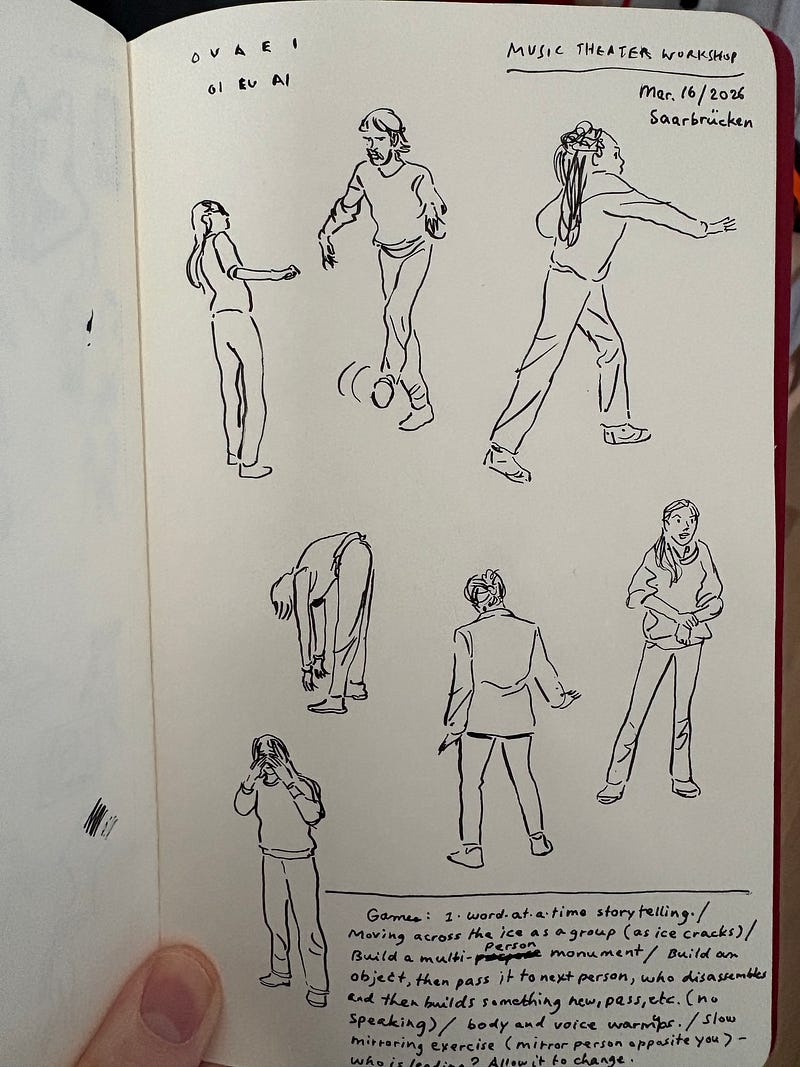 O U A E I
OI EU AI
MUSIC THEATER WORKSHOP
Mar. 16/2026
Saarbrücken
Games: 1. word-at-a-time storytelling. /
Moving across the ice as a group (as ice cracks) /
Build a multi-person monument / Build an
object, then pass it to next person, who disassembles
and then builds something new, pass, etc. (no
speaking) / body and voice warmups. / slow
mirroring exercise (mirror person opposite you) –
who is leading? Allow it to change.